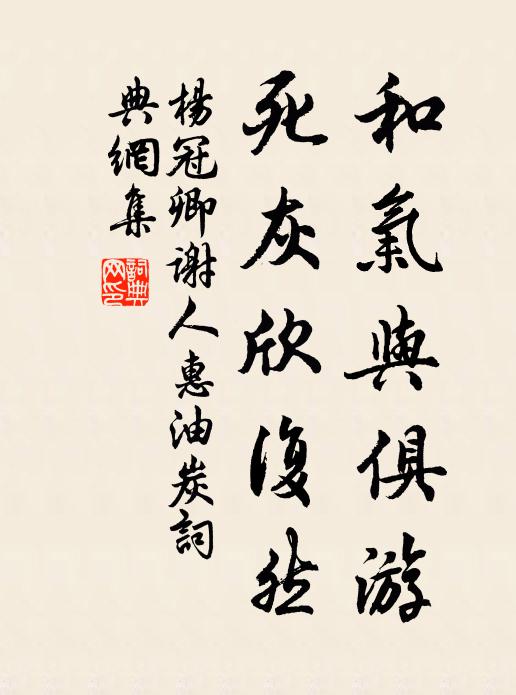 和氣與俱游
死灰欣復然
楊冠卿謝人惠油炭詞
典網集
詞典網印